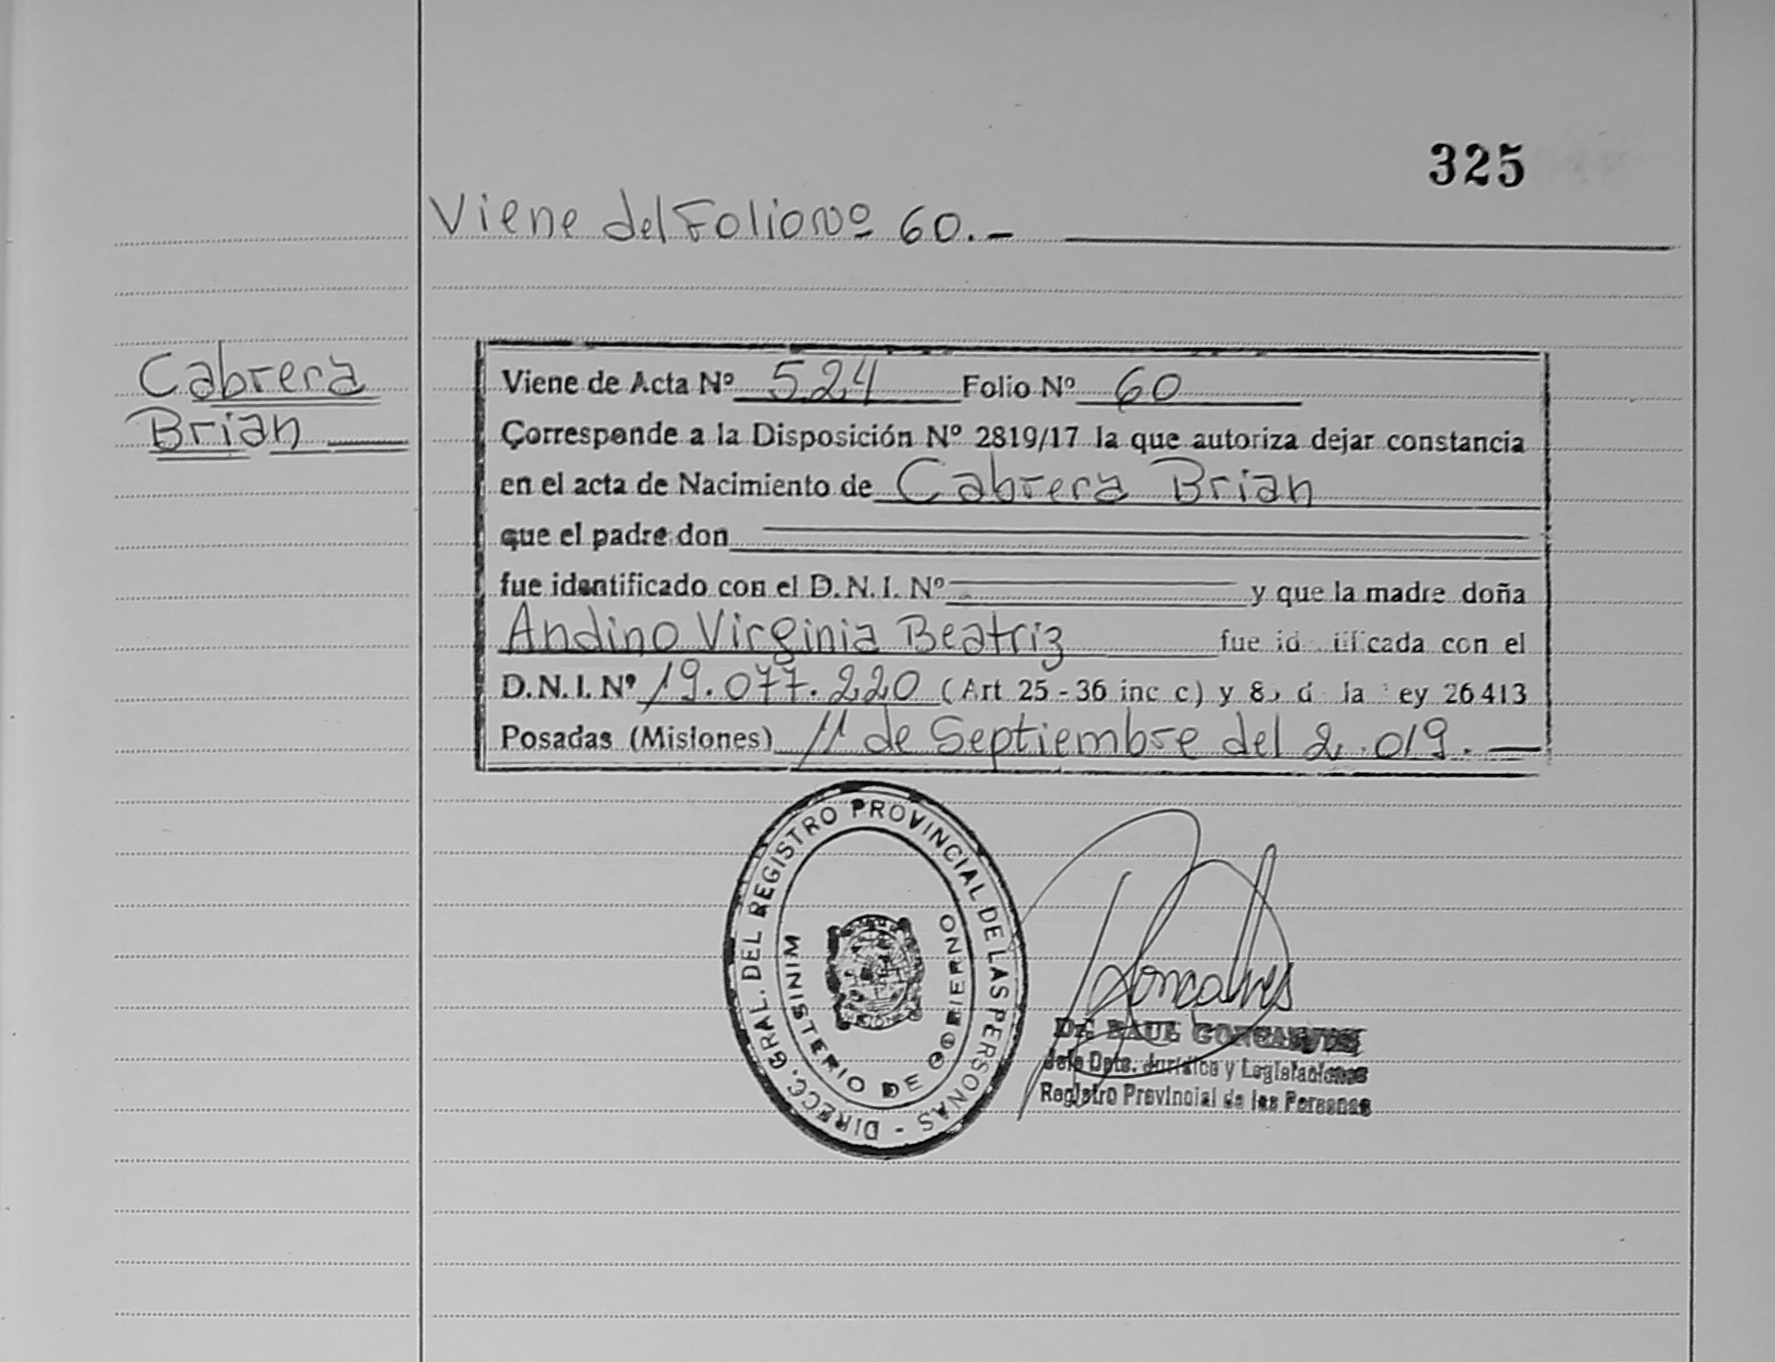 325
Viene del Folio Nº 60.-
Cabrera
Brian
Viene de Acta Nº 524 Folio Nº 60
Corresponde a la Disposición Nº 2819/17 la que autoriza dejar constancia
en el acta de Nacimiento de Cabrera Brian
que el padre don
fue identificado con el D.N.I. Nº y que la madre doña
Andino Virginia Beatriz fue id tificada con el
D.N.I. Nº 19.077.220 (Art 25-36 inc c) y 8, d la ey 26413
Posadas (Misiones) 11 de Septiembre del 2.019.-
DIRECC. GRAL. DEL REGISTRO PROVINCIAL DE LAS PERSONAS -
MINISTERIO DE GOBIERNO
Goncalves
Dr. RAUL GONCALVES
Jefe Dpto. Jurídico y Legislaciones
Registro Provincial de las Personas